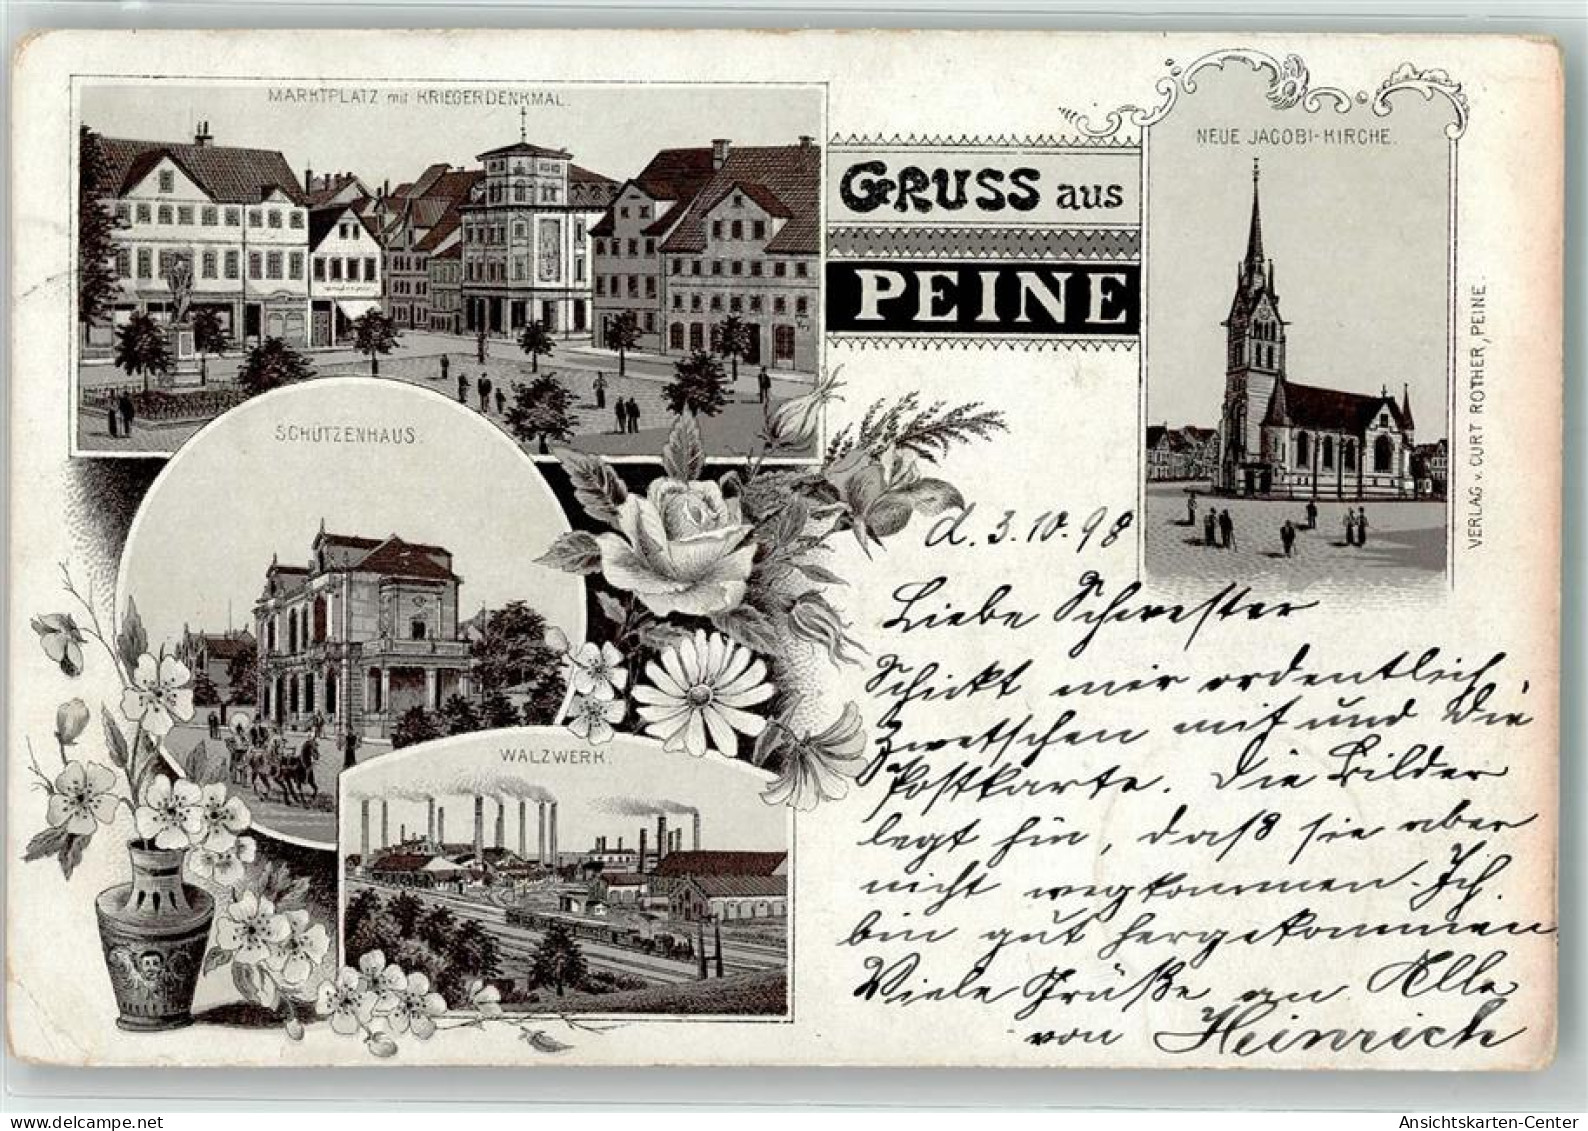 MARKTPLATZ mit KRIEGERDENKMAL.
GRUSS aus
PEINE
NEUE JACOBI-KIRCHE.
SCHÜTZENHAUS.
WALZWERK.
VERLAG v. CURT ROTHER, PEINE.
d. 3.10.98
Liebe Schwester
Schickt mir ordentlich
Zwetschen mit und die
Postkarte. Die Bilder
legt hin, daß sie aber
nicht wegkommen. Ich
bin gut hergekommen
Viele Grüße an Alle
von Heinrich
Ansichtskarten-Center
www.delcampe.net